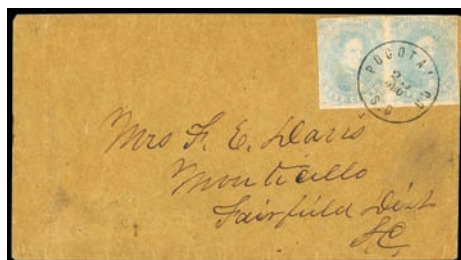 POCOTALIGO S.C.
Mrs F. E. Davis
Monticello
Fairfield Dist
SC